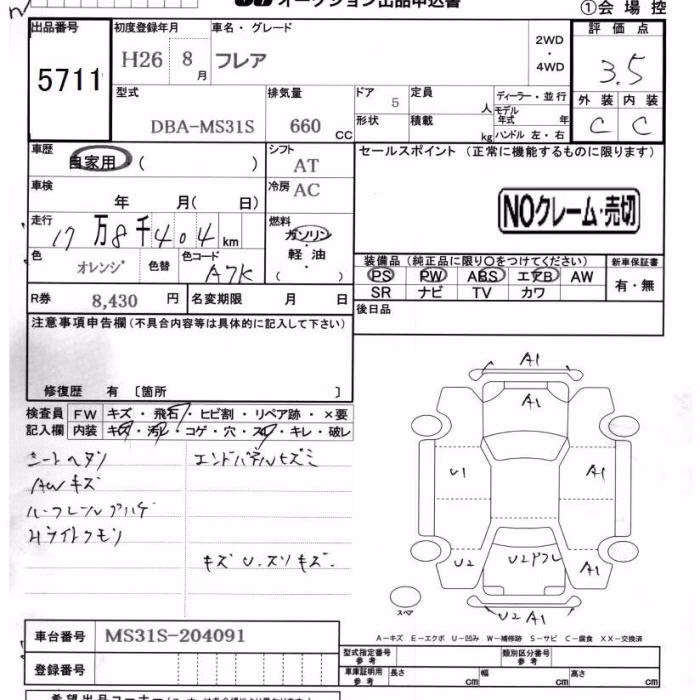 オークション出品申込書
①会場控
出品番号 初度登録年月 車名・グレード 2WD・4WD 評価点
5711 H26 8月 フレア 3.5
型式 排気量 ドア 5 定員 人 ディーラー・並行 外装 内装
DBA-MS31S 660 CC 形状 積載 kg モデル年式 年 ハンドル 左・右 C C
車歴 自家用 ( ) シフト AT セールスポイント (正常に機能するものに限ります)
車検 年 月( 日) 冷房 AC
NOクレーム・売切
走行 17万8千404km 燃料 ガソリン
軽油
( )
色 オレンジ 色替 色コード A7K
装備品 (純正品に限り〇をつけてください) 新車保証書
PS PW ABS エアB AW 有・無
SR ナビ TV カワ
R券 8,430円 名変期限 月 日
後日品
注意事項申告欄(不具合内容等は具体的に記入して下さい)
修復歴 有 〔箇所 〕
検査員 FW キズ・飛石・ヒビ割・リペア跡・×要
記入欄 内装 キズ・汚レ・コゲ・穴・スレ・キレ・破レ
シートヘタリ エンドパネルヒズミ
AWキズ
ルーフレールハゲ
Hライトクモリ
キズ U.スリキズ.
A1
A1
U1 A1
U2 U2アフレ A1
スペア
U2 A1
A-キズ E-エクボ U-凹み W-補修跡 S-サビ C-腐食 XX-交換済
車台番号 MS31S-204091
型式指定番号 参考 類別区分番号 参考
登録番号
車庫証明用 参考 長さ cm 幅 cm 高さ cm
希望出品コーナー